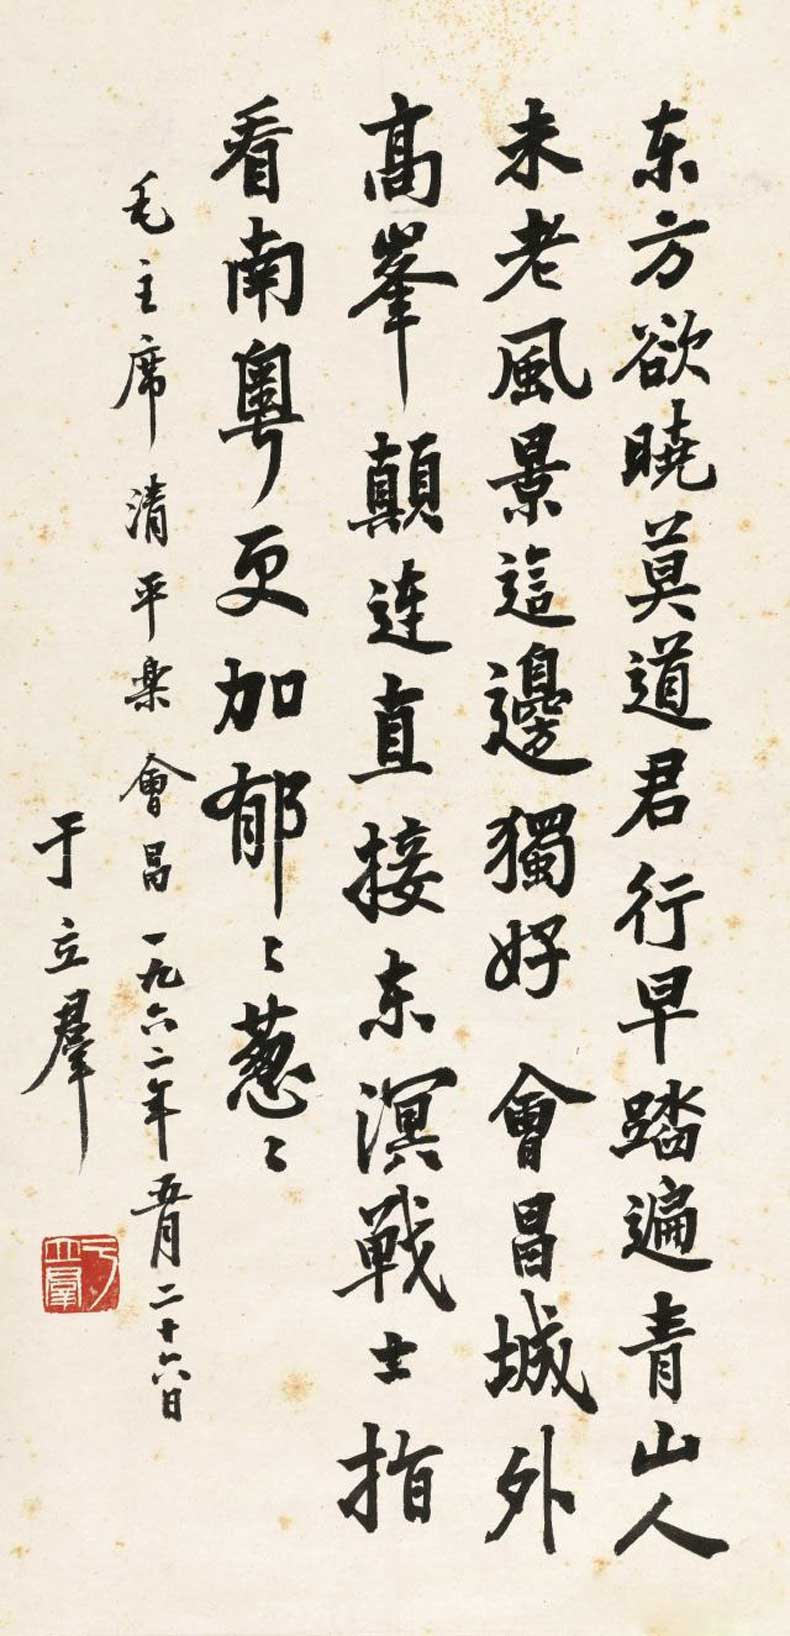 东方欲曉莫道君行早踏遍青山人
未老風景這邊獨好會昌城外
高峯顛連直接东溟戦士指
看南粵更加郁〻葱〻
毛主席清平樂會昌一九六二年五月二十六日
于立羣
于立羣